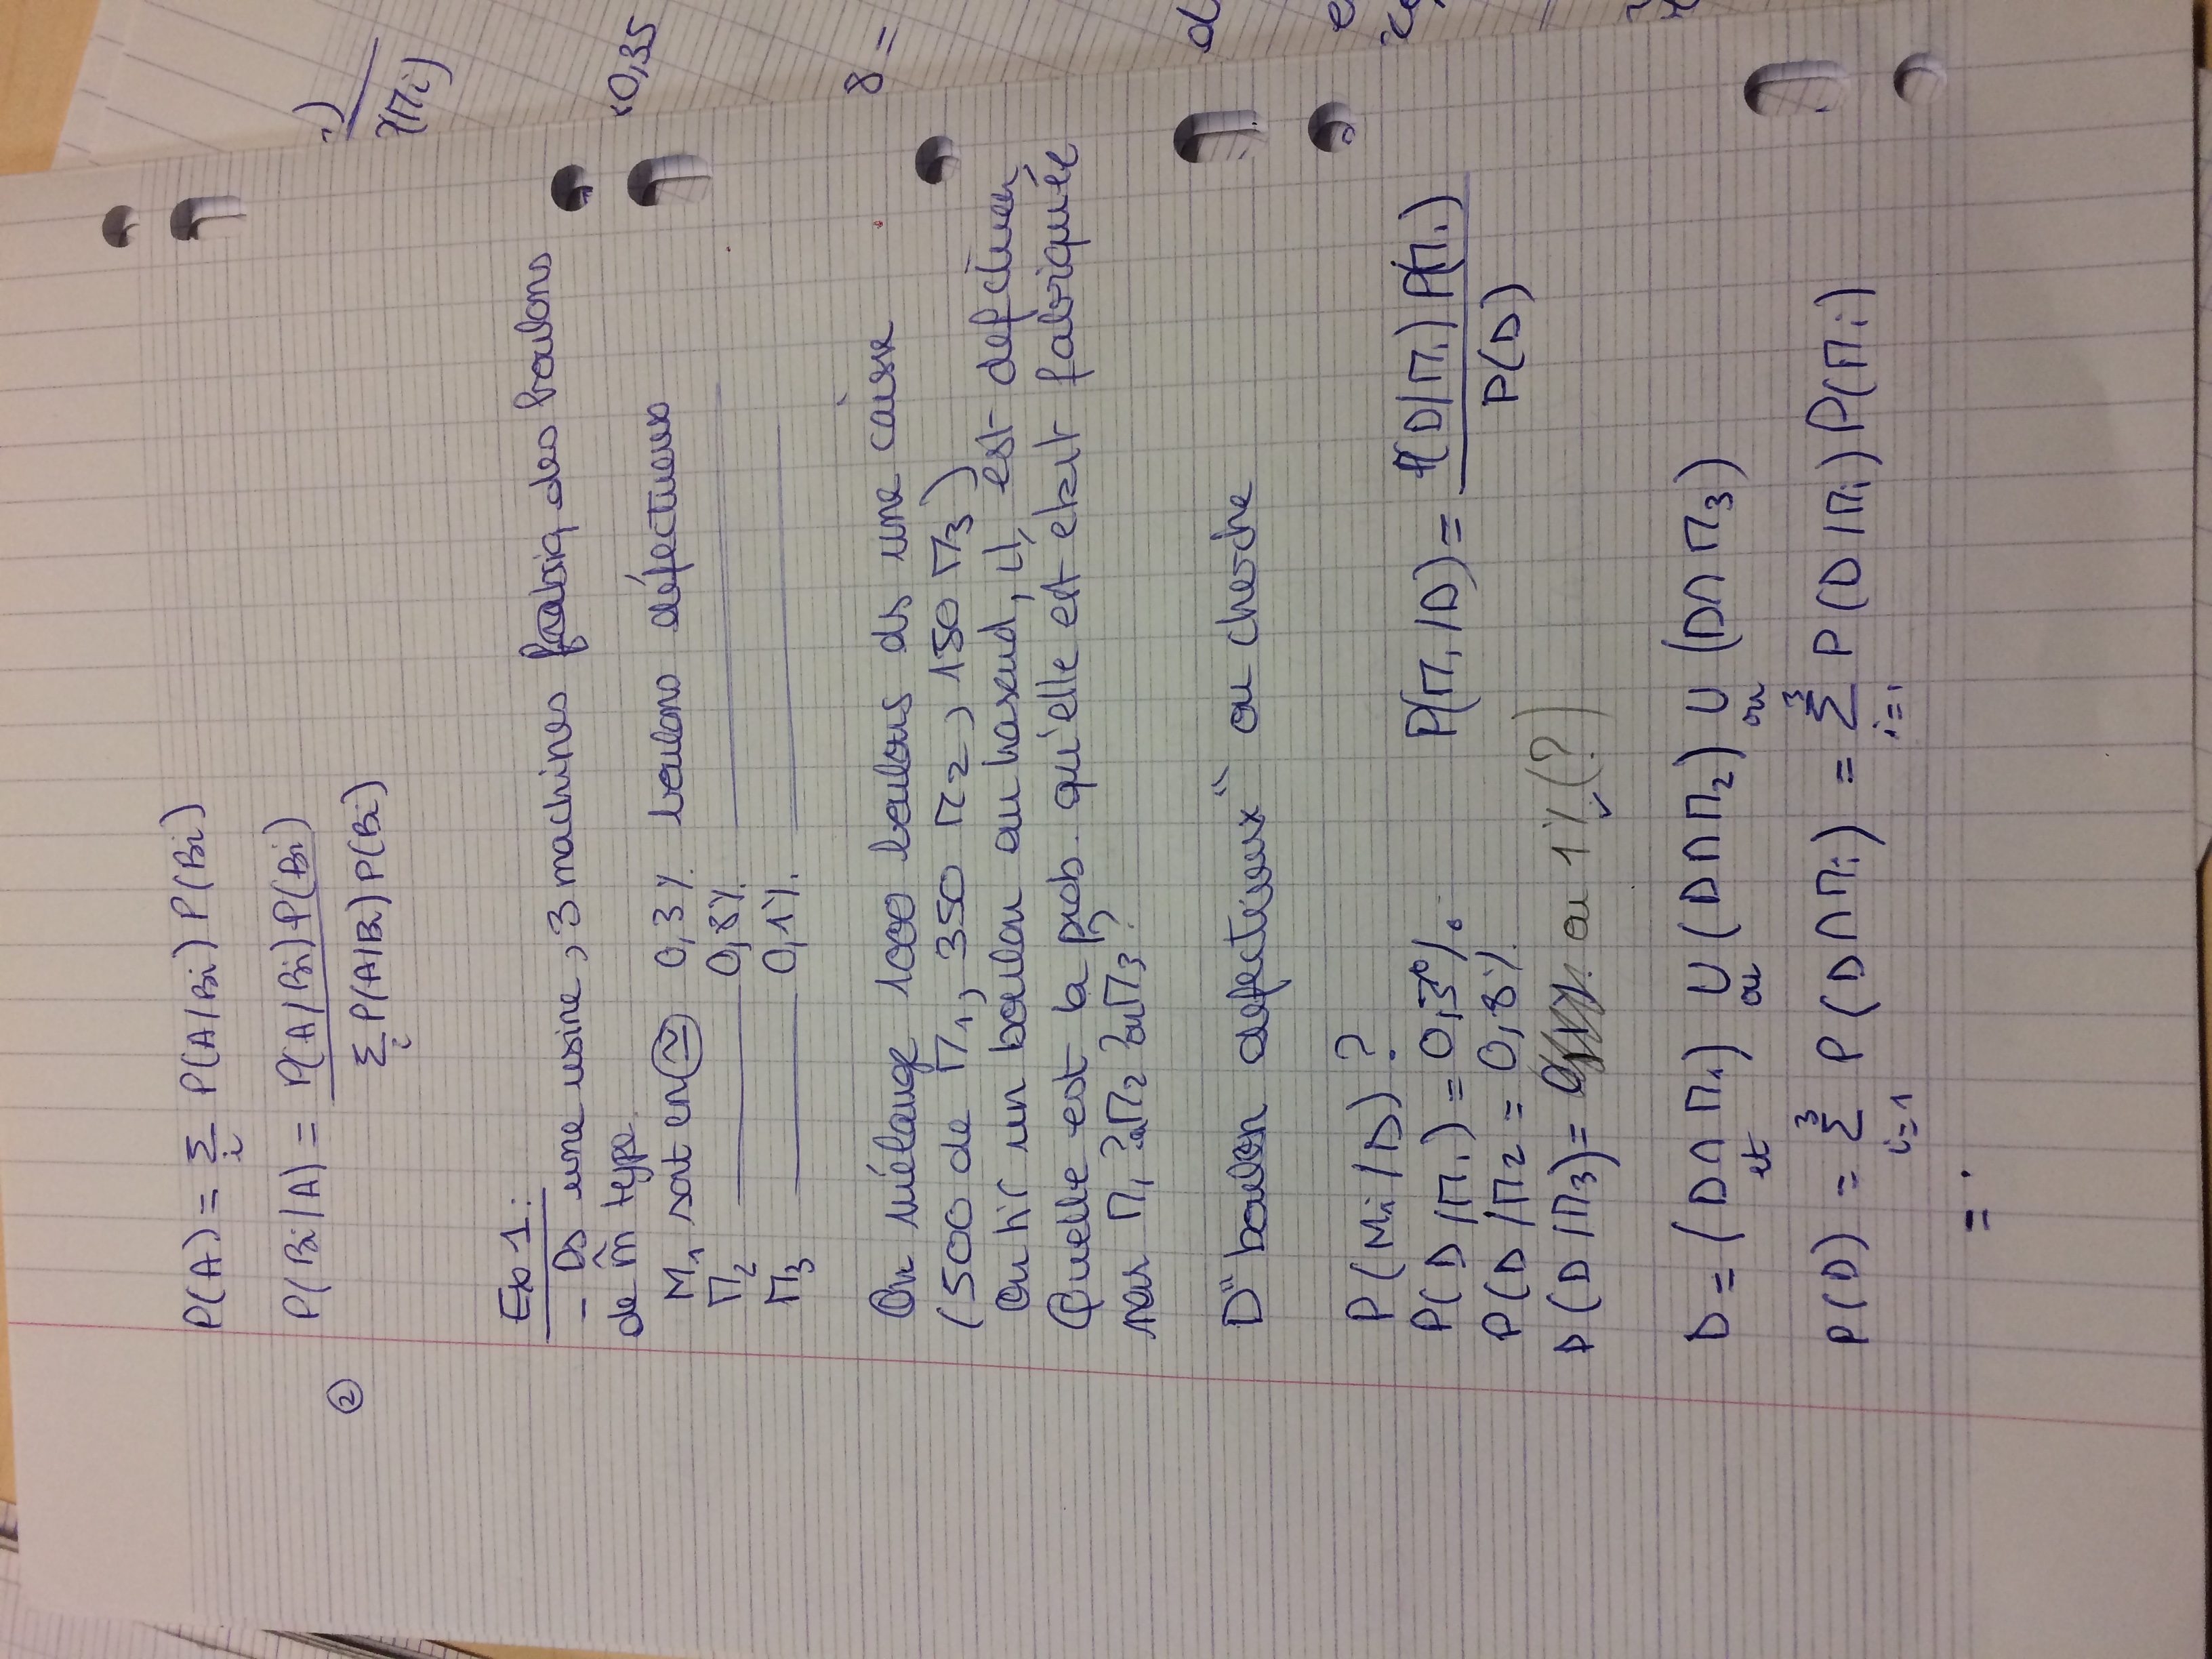 P(A) = Σ P(A/Bi) P(Bi)
i
P(Bi/A) = P(A/Bi) P(Bi)
②
Σ P(A/Bi) P(Bi)
i
Ex 1:
- Ds une usine, 3 machines fabriq des boulons
de m̂ type.
M1 sort en ≃ 0,3% boulons défectueux
M2 ——— 0,8% ———
M3 ——— 0,1% ———
On mélange 1000 boulons ds une caisse
(500 de M1, 350 M2, 150 M3)
On tir un boulon au hasard, il est
Quelle est la prob. qu'elle est était fabriquée
par M1 ? M2 ? ou M3 ?
D "boulon defectueux" on cherche
P(Mi/D) ?
P(D/M1) = 0,3%
P(M1/D) = P(D/M1) P(M1)
P(D)
P(D/M2 = 0,8%
P(D/M3) = 0,1% ou 1% (?)
D = (D∩M1) U (D∩M2) U (D∩M3)
et ou ou
3 3
P(D) = Σ P(D∩Mi) = Σ P(D/Mi) P(Mi)
i=1 i=1
= .
)
(Mi)
×0,35
8 =
d
e